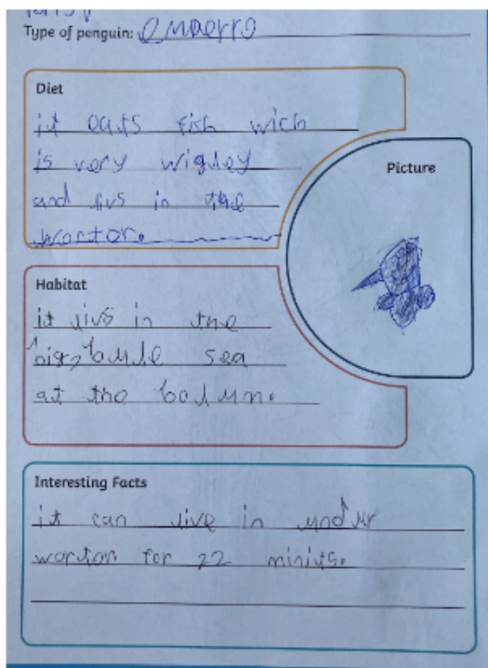 Type of penguin: Emaerro
Diet
it eats fish wich
is very wigley
and livs in the
wortor.
Picture
Habitat
it livs in the
big, bule sea
at the botum.
Interesting Facts
it can live in undur
wortor for 22 minits.